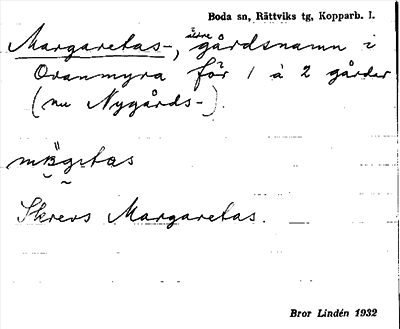 Boda sn, Rättviks tg, Kopparb. l.
Margaretas-, äldre gårdsnamn i
Ovanmyra för 1 à 2 gårdar
(nu Nygårds-).
Skrevs Margaretas.
Bror Lindén 1932